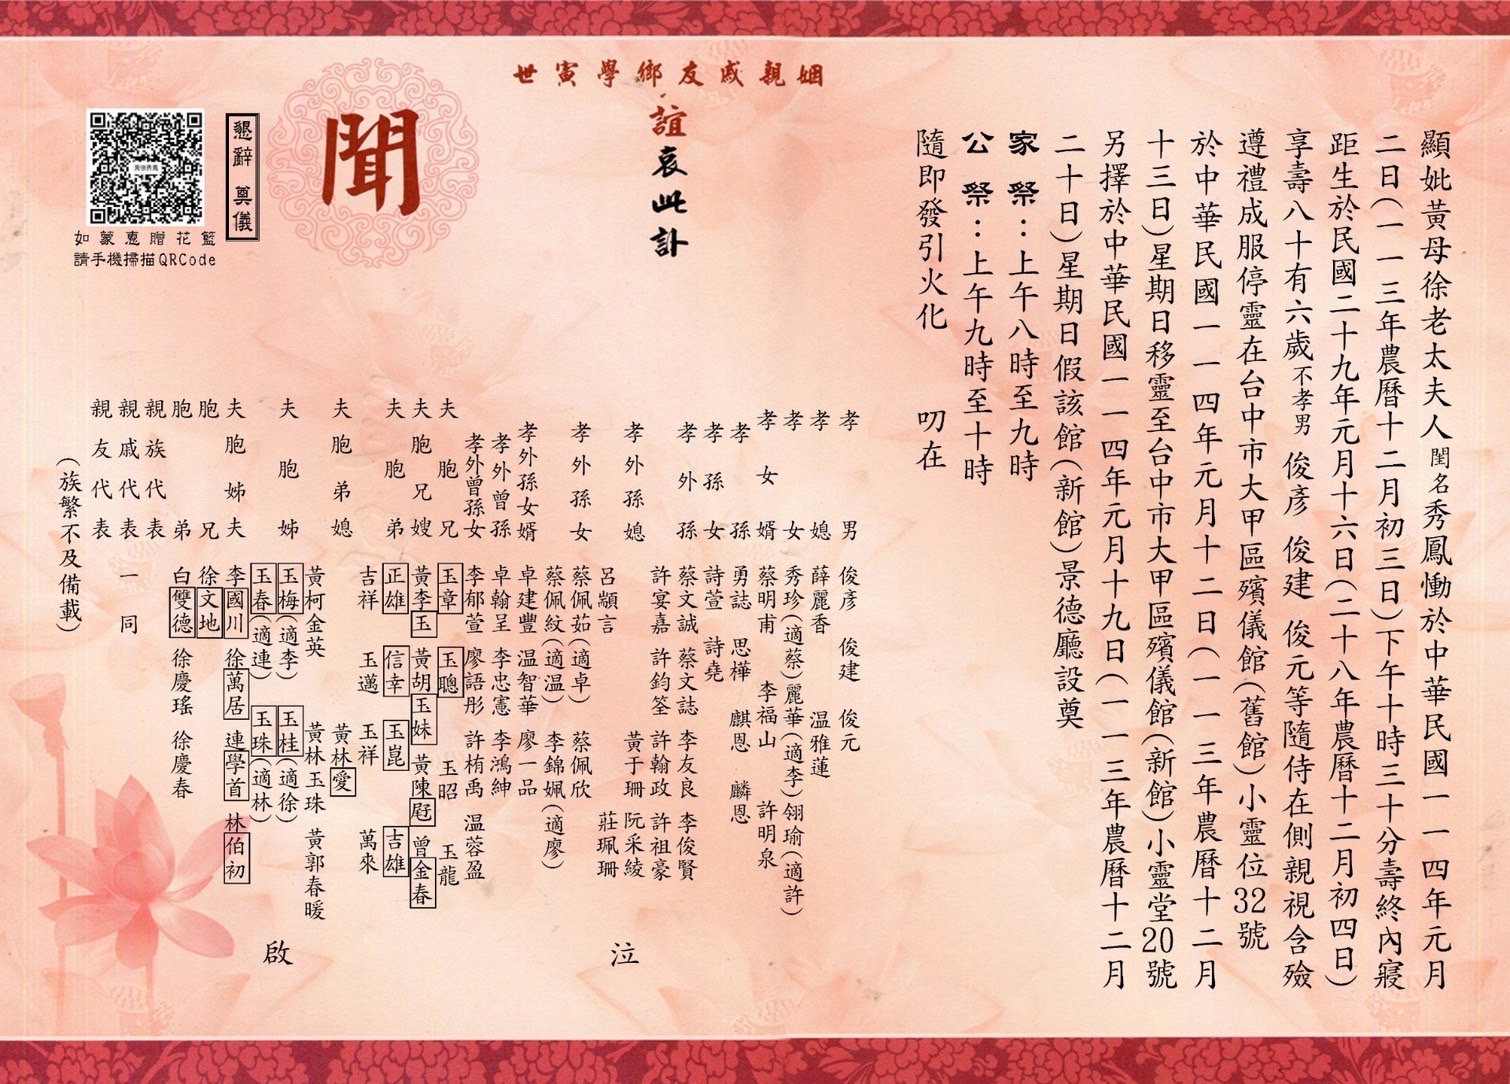 顯妣黃母徐老太夫人閨名秀鳳慟於中華民國一一四年元月
二日(一一三年農曆十二月初三日)下午十時三十分壽終內寢
距生於民國二十九年元月十六日(二十八年農曆十二月初四日)
享壽八十有六歲不孝男 俊彥 俊建 俊元等隨侍在側親視含殮
遵禮成服停靈在台中市大甲區殯儀館(舊館)小靈位32號
於中華民國一一四年元月十二日(一一三年農曆十二月
十三日)星期日移靈至台中市大甲區殯儀館(新館)小靈堂20號
另擇於中華民國一一四年元月十九日(一一三年農曆十二月
二十日)星期日假該館(新館)景德廳設奠
家祭：上午八時至九時
公祭：上午九時至十時
隨即發引火化 叨在
姻親戚友鄉學寅世
誼哀此訃
聞
懇辭 奠儀
如蒙惠贈花籃
請手機掃描QRCode
孝男 俊彥 俊建 俊元
孝媳 薛麗香 温雅蓮
孝女 秀珍(適蔡) 麗華(適李) 翎瑜(適許)
孝女婿 蔡明甫 李福山 許明泉
孝孫 勇誌 思樺 麒恩 麟恩
孝孫女 詩萱 詩堯
孝外孫 蔡文誠 蔡文誌 李友良 李俊賢
許宴嘉 許鈞筌 許翰政 許祖豪
孝外孫媳 黃于珊 阮采綾
呂顓言 莊珮珊
孝外孫女 蔡佩茹(適卓) 蔡佩欣
蔡佩紋(適温) 李錦姵(適廖)
孝外孫女婿 卓建豐 温智華 廖一品
孝外曾孫 卓翰呈 李忠憲 李鴻紳
孝外曾孫女 李郁萱 廖語彤 許栯禹 温蓉盈
夫胞兄 玉章 玉聰 玉昭 玉龍
夫胞兄嫂 黃李玉 黃胡玉妹 黃陳屘 曾金春
夫胞弟 正雄 信幸 玉崑 吉雄
吉祥 玉邁 玉祥 萬來
夫胞弟媳 黃林愛
黃柯金英 黃林玉珠 黃郭春暖
夫胞姊 玉梅(適李) 玉桂(適徐)
玉春(適連) 玉珠(適林)
夫胞姊夫 李國川 徐萬居 連學首 林伯初
胞兄 徐文地
胞弟 白雙德 徐慶瑤 徐慶春
親族代表
親戚代表 一同
親友代表
(族繁不及備載)
泣
啟